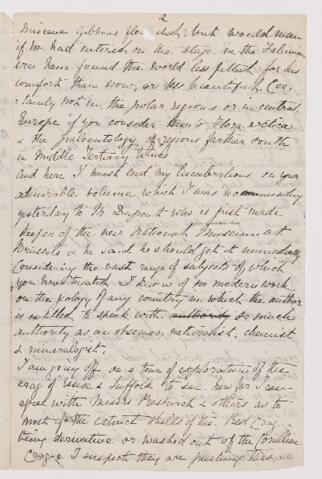 2
Miocene Gibbons flourished; but would man
if he had entered on the stage in the Falunian
era have found the world less fitted for his
comfort than now, or less beautiful. Cer-
tainly not in the polar regions or in central
Europe if you consider Heer's Flora arctica
& the palaeontology of regions farther south
in Middle Tertiary times
And here I must end my lucubrations on your
admirable volume which I was recommending
yesterday to Mr. Dupont who is just made
keeper of the new National Museum at
Brussels & he said he should get it immediately
Considering the vast range of subjects of which
you have treated I know of no modern work
on the geology of any country in which the author
is entitled to speak with authority so much
authority as an observer, naturalist, chemist
& mineralogist.
I am going off on a tour of exploration of the
crag of Essex & Suffolk to see how far I can
agree with Messrs Prestwich & others as to
most of the extinct shells of the Red Crag
being derivative or washed out of the Coralline
Crag. I suspect they are pushing this